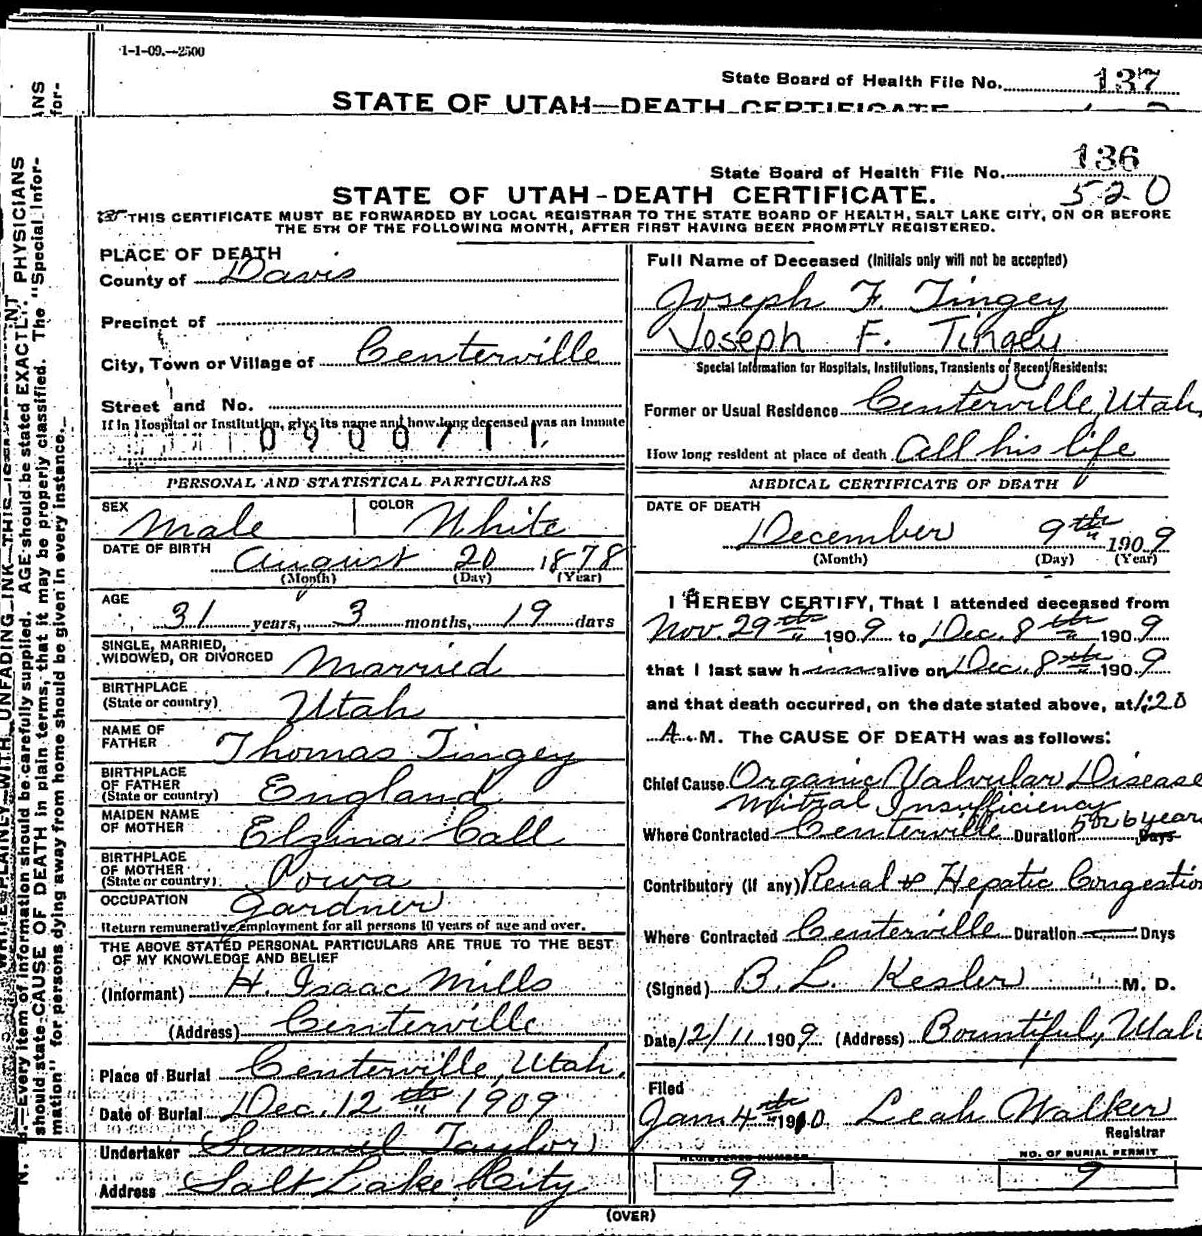 1-1-09.—2500
State Board of Health File No. 137
STATE OF UTAH—DEATH CERTIFICATE
State Board of Health File No. 136
STATE OF UTAH-DEATH CERTIFICATE. 520
THIS CERTIFICATE MUST BE FORWARDED BY LOCAL REGISTRAR TO THE STATE BOARD OF HEALTH, SALT LAKE CITY, ON OR BEFORE
THE 5TH OF THE FOLLOWING MONTH, AFTER FIRST HAVING BEEN PROMPTLY REGISTERED.
PLACE OF DEATH
County of Davis
Precinct of
City, Town or Village of Centerville
Street and No.
If in Hospital or Institution, give its name and how long deceased was an inmate
0900711
PERSONAL AND STATISTICAL PARTICULARS
SEX Male COLOR White
DATE OF BIRTH August 20 1878
(Month) (Day) (Year)
AGE
31 years, 3 months, 19 days
SINGLE, MARRIED,
WIDOWED, OR DIVORCED Married
BIRTHPLACE
(State or country) Utah
NAME OF
FATHER Thomas Tingey
BIRTHPLACE
OF FATHER
(State or country) England
MAIDEN NAME
OF MOTHER Elzina Call
BIRTHPLACE
OF MOTHER
(State or country) Iowa
OCCUPATION Gardner
Return remunerative employment for all persons 10 years of age and over.
THE ABOVE STATED PERSONAL PARTICULARS ARE TRUE TO THE BEST
OF MY KNOWLEDGE AND BELIEF
(Informant) H. Isaac Mills
(Address) Centerville
Place of Burial Centerville, Utah.
Date of Burial Dec. 12th 1909
Undertaker Samuel Taylor
Address Salt Lake City
Full Name of Deceased (Initials only will not be accepted)
Joseph F. Tingey
Joseph F. Tingey
Special Information for Hospitals, Institutions, Transients or Recent Residents:
Former or Usual Residence Centerville, Utah,
How long resident at place of death All his life
MEDICAL CERTIFICATE OF DEATH
DATE OF DEATH
December 9th 1909
(Month) (Day) (Year)
I HEREBY CERTIFY, That I attended deceased from
Nov. 29th 1909 to Dec. 8th 1909
that I last saw him alive on Dec. 8th 1909
and that death occurred, on the date stated above, at 1:20
A. M. The CAUSE OF DEATH was as follows:
Chief Cause Organic Valvular Disease
Mitral Insufficiency
Where Contracted Centerville Duration 5 or 6 years Days
Contributory (if any) Renal & Hepatic Congestion
Where Contracted Centerville Duration — Days
(Signed) B. L. Kesler M. D.
Date 12/11 1909 (Address) Bountiful, Utah
Filed
Jan. 4th 1910 Leah Walker
Registrar
REGISTERED NUMBER
9
NO. OF BURIAL PERMIT
9
(OVER)
should state CAUSE OF DEATH in plain terms, that it may be properly classified. The "Special Infor-
mation" for persons dying away from home should be given in every instance.
N. B.—Every item of information should be carefully supplied. AGE should be stated EXACTLY. PHYSICIANS